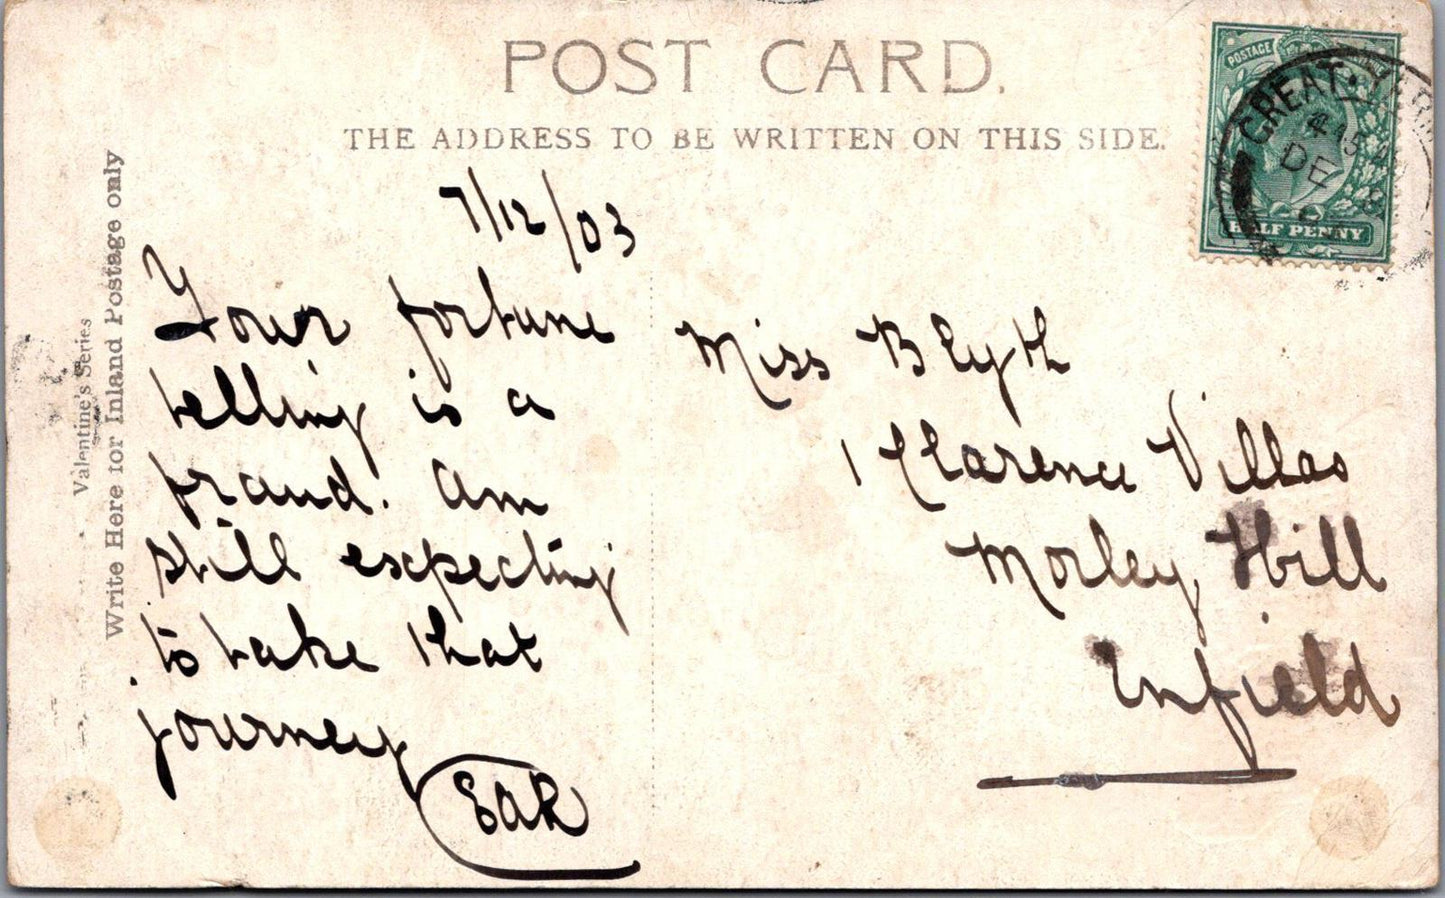 POST CARD.
THE ADDRESS TO BE WRITTEN ON THIS SIDE.
Valentine's Series
Write Here for Inland Postage only
POSTAGE
HALF PENNY
GREAT YARM
DE
7/12/03
Your fortune
telling is a
fraud. Am
still expecting
to take that
journey
EAR
Miss Blyth
1 Clarence Villas
Morley Hill
Enfield